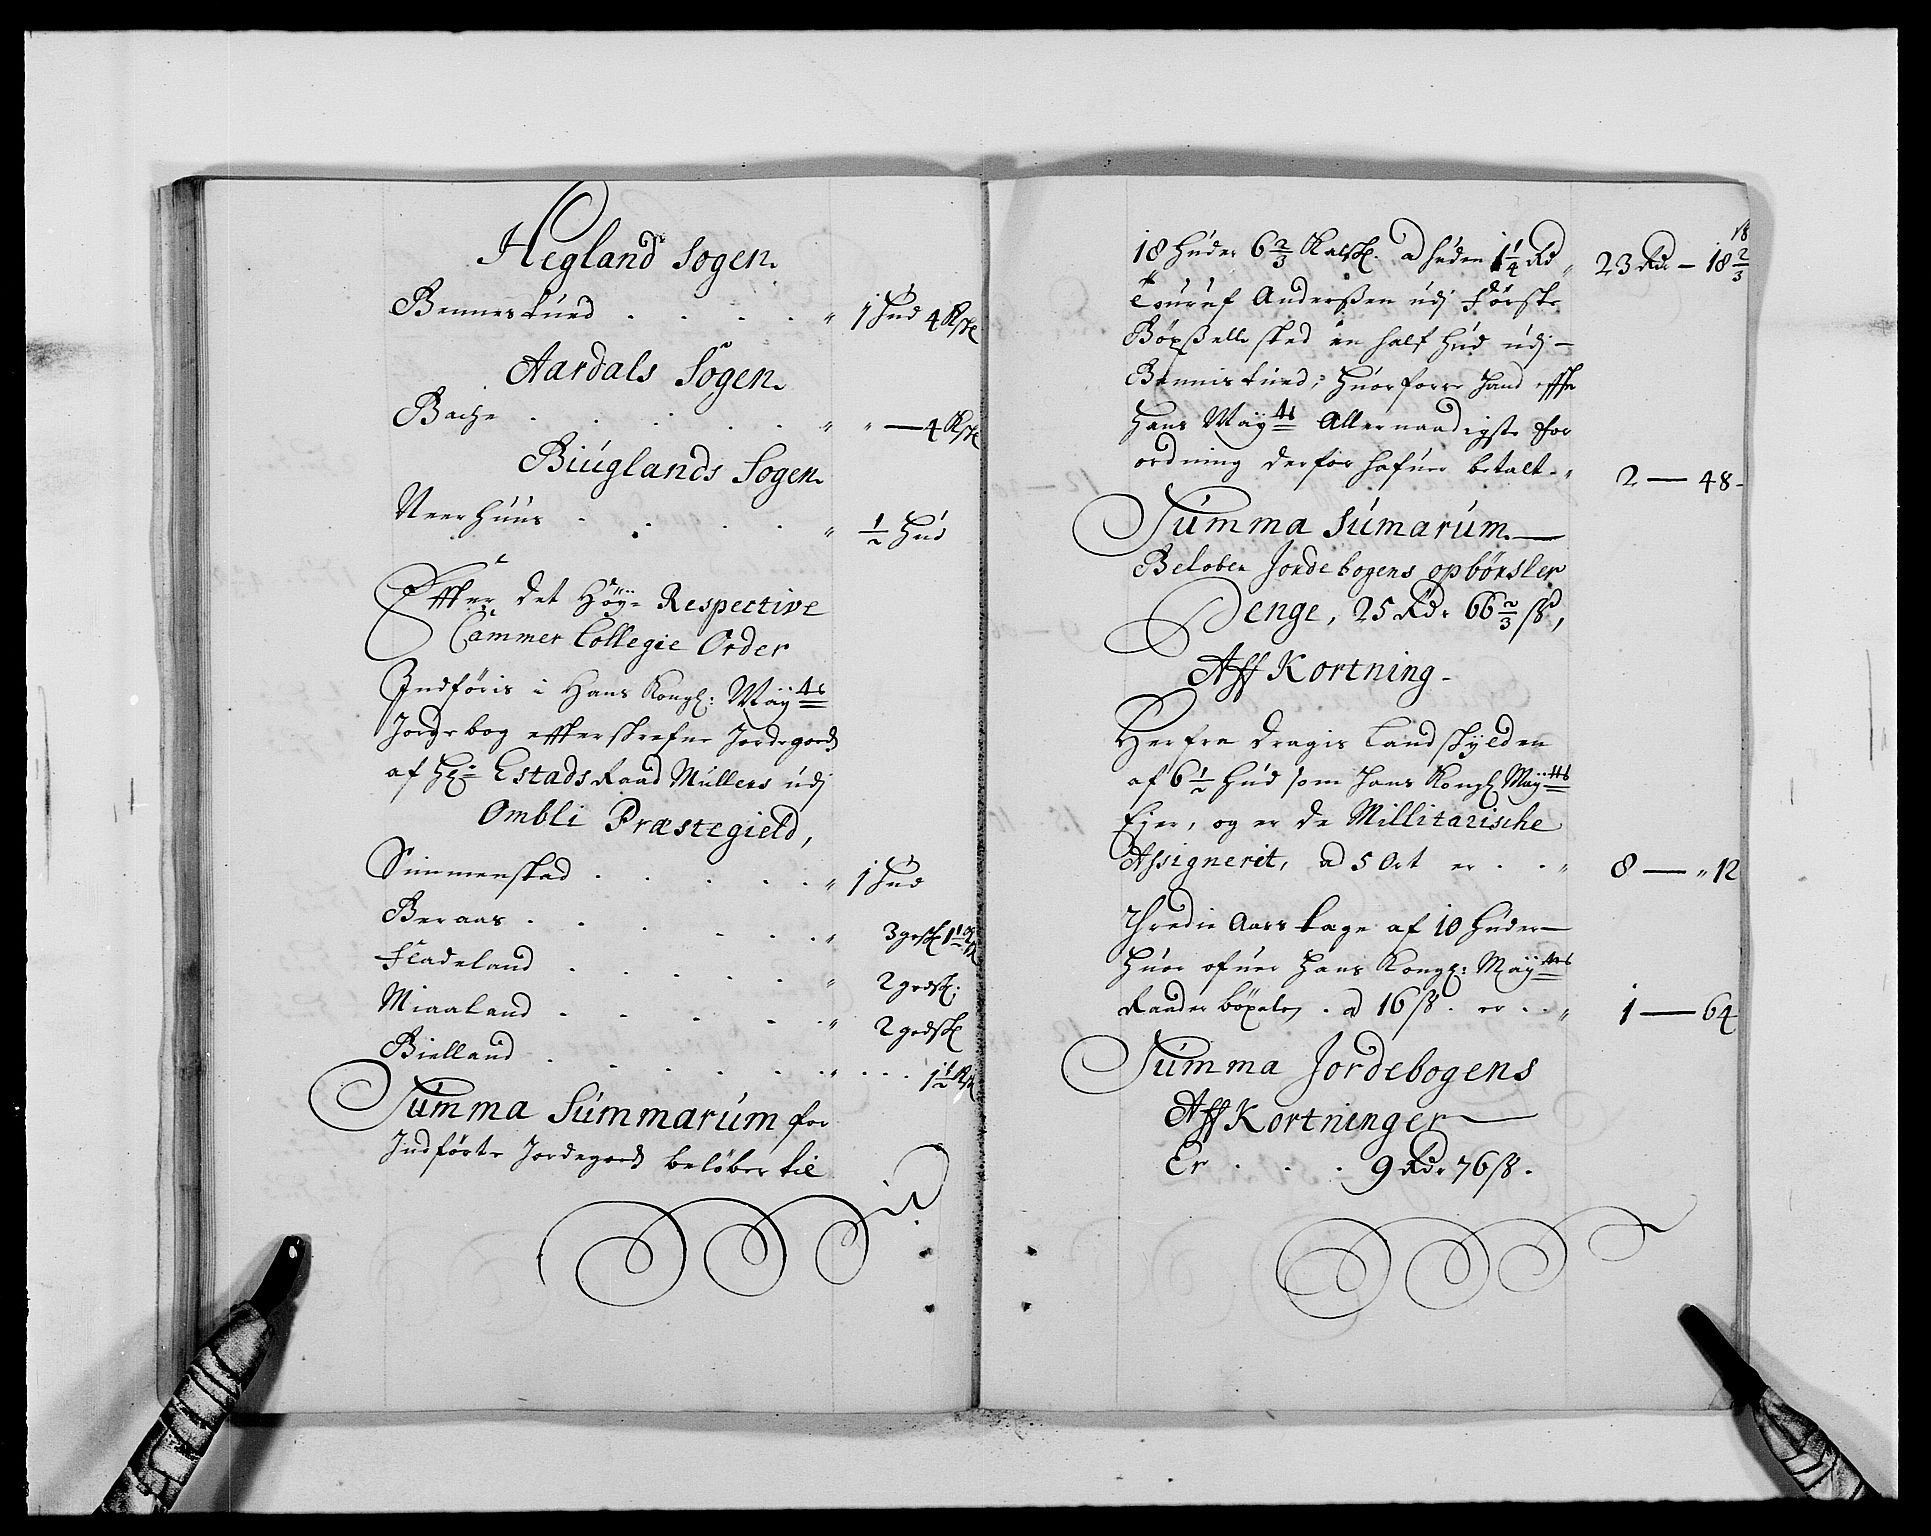 Hegland Sogen.
Bennestued . . . . " 1 Hud 4 Kalfsk
Aardals Sogen.
Bache . . . . . " " — 4 Kalfsk
Biuglands Sogen.
Neerhuus . . . . " ½ Hud
Effter det Høÿe Respective
Cammer Collegie Order
Indføris i Hans Kongl: Maÿts
Jordebog effterskrefne Jordegods
af Hr Estads Raad Mullers udj
Ombli Præstegield,
Simmenstad . . . . . " 1 Hud
Beraas . . . . . "
Fladeland . . . . "
Miaaland . . . . . "
Bielland . . . . . " . . . 1½
Summa Summarum for
Indførte Jordegods beløber til
18
18 Huder 6⅔ Kalfsk. ad huden 1¼ Rd " 23 Rdr — 18⅔
Anderßen udj Første
Bøxßell sted en half Hud udj —
Bennistued, huorforre hand effter
Hans Maÿts Allernaadigste for
ordning derfor hafuer betalt. " 2 — 48 -
Summa Sumarum. —
Beløber Jordebogens opbørsler
Penge, 25 Rdr 66⅔ ß,
Aff Kortning -
Herfra dragis Landskÿlden
af 6½ Hud som Hans Kongl Maÿtts
Ejer, og er de Millitarische
Assignerit, ad 5 Ort er . . " 8 — " 12
Tredie Aars tage af 10 Huder —
Huor ofuer Hans Kongl: Maÿtts
Raader bøxelen . ad 16 ß . er . . " 1 — 64
Summa Jordebogens
Aff Kortninger —
Er . . . 9 Rdr 76 ß.